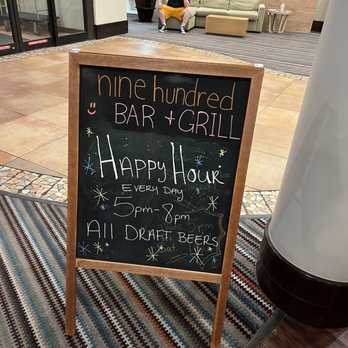 nine hundred
BAR + GRILL
HAPPY HOUR
EVERY DAY
5pm-8pm
All DRAFT BEERS